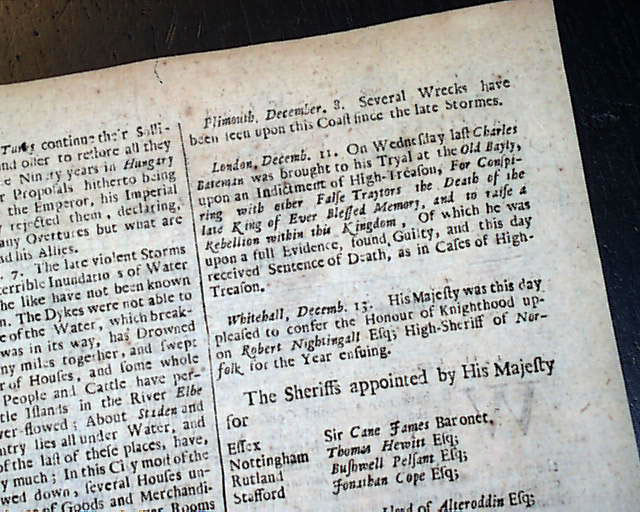 Turks continue their Salli-
and offer to restore all they
Ninety years in Hungary
Proposals hitherto being
the Emperor, his Imperial
rejected them, declaring,
any Overtures but what are
and his Allies.
7. The late violent Storms
terrible Inundatio s of Water
the like have not been known
n. The Dykes were not able to
e of the Water, which break-
was in its way, has Drowned
ny miles together, and swept
r of Houses, and some whole
People and Cattle have per-
tle Islands in the River Elbe
ver-flowed; About Staden and
ntry lies all under Water, and
of the last of these places, have,
y much; In this City most of the
wed down, several Houses un-
e of Goods and Merchandi-
Rooms
Plimouth, December. 8. Several Wrecks have
been seen upon this Coast since the late Stormes.
London, Decemb. 11. On Wednesday last Charles
Bateman was brought to his Tryal at the Old Bayly,
upon an Indictment of High-Treason, For Conspi-
ring with other False Traytors the Death of the
late King of Ever Blessed Memory, and to raise a
Rebellion within this Kingdom, Of which he was
upon a full Evidence, found Guilty, and this day
received Sentence of Death, as in Cases of High-
Treason.
Whitehall, Decemb. 13. His Majesty was this day
pleased to confer the Honour of Knighthood up-
on Robert Nightingall Esq; High-Sheriff of Nor-
folk for the Year ensuing.
The Sheriffs appointed by His Majesty
for
Essex Sir Cane James Baronet,
Nottingham Thomas Hewitt Esq;
Rutland Bushwell Pelsant Esq;
Stafford Jonathan Cope Esq;
of Alteroddin Esq;